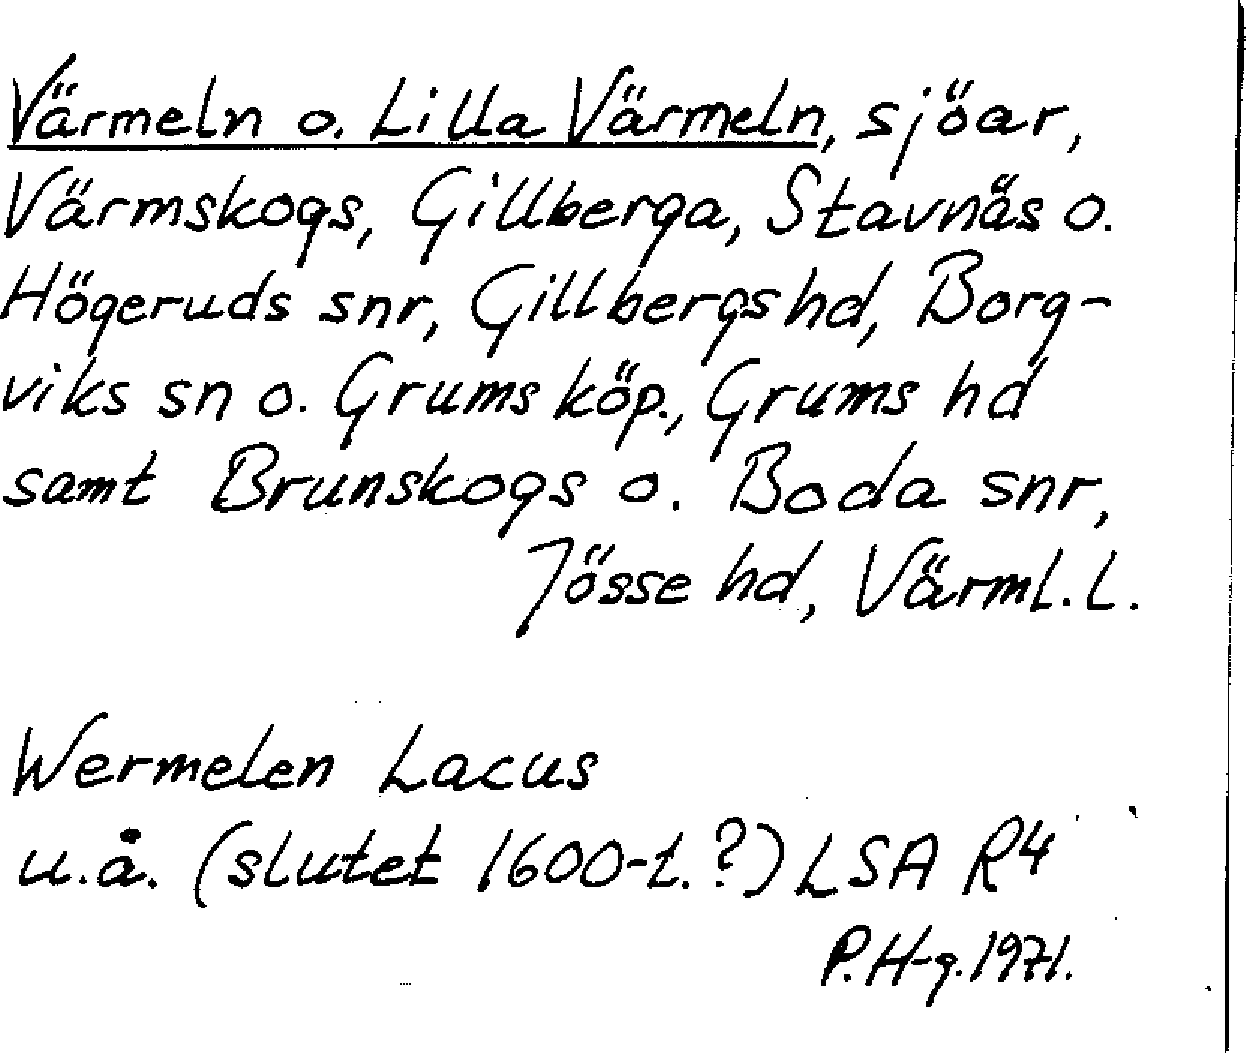 Värmeln o. Lilla Värmeln, sjöar,
Värmskogs, Gillberga, Stavnäs o.
Högeruds snr, Gillbergs hd, Borg-
viks sn o. Grums köp., Grums hd
samt Brunskogs o. Boda snr,
Jösse hd, Värml. l.
Wermelen Lacus
u.å. (slutet 1600-t.?) LSA R4
P.H-g. 1971.